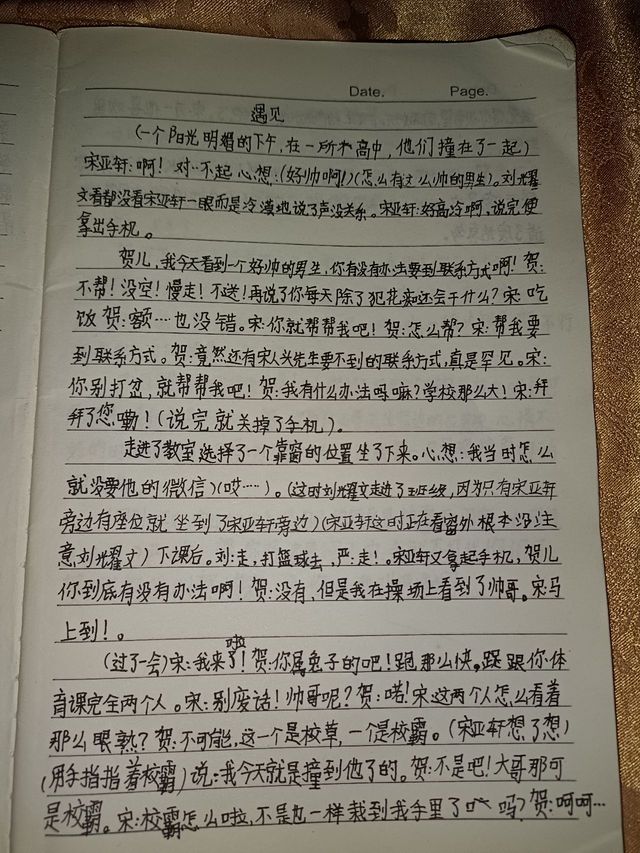 Date. Page.
遇见
(一个阳光明媚的下午,在一所高中,他们撞在了一起)
宋亚轩:啊!对··不起 心想:(好帅啊!)(怎么有这么帅的男生)。刘耀
文看都没看宋亚轩一眼而是冷漠地说了声没关系。宋亚轩:好高冷啊,说完便
拿出手机。
贺儿,我今天看到一个好帅的男生,你有没有办法要到联系方式啊!贺:
不帮!没空!慢走!不送!再说了你每天除了犯花痴还会干什么?宋:吃
饭 贺:额····也没错。宋:你就帮帮我吧!贺:怎么帮?宋:帮我要
到联系方式。贺:竟然还有宋人头先生要不到的联系方式,真是罕见。宋:
你别打岔,就帮帮我吧!贺:我有什么办法吗嘛?学校那么大!宋:拜
拜了您嘞!(说完就关掉了手机)。
走进了教室选择了一个靠窗的位置坐了下来。心想:我当时怎么
就没要他的微信)(哎····)。(这时刘耀文走进了班级,因为只有宋亚轩
旁边有座位就坐到了宋亚轩旁边)(宋亚轩这时正在看窗外根本没注
意刘耀文)下课后。刘:走,打篮球去,严:走!。宋亚轩又拿起手机,贺儿
你到底有没有办法啊!贺:没有,但是我在操场上看到了帅哥。宋马
上到!。
(过了一会)宋:我来啦!贺:你属兔子的吧!跑那么快。跟你体
育课完全两个人。宋:别废话!帅哥呢?贺:喏!宋:这两个人怎么看着
那么眼熟?贺:不可能,这一个是校草,一个是校霸。(宋亚轩想了想)
(用手指指着校霸)说:我今天就是撞到他了的。贺:不是吧!大哥那可
是校霸。宋:校霸怎么啦,不是也一样栽到我手里了吗?贺:呵呵···